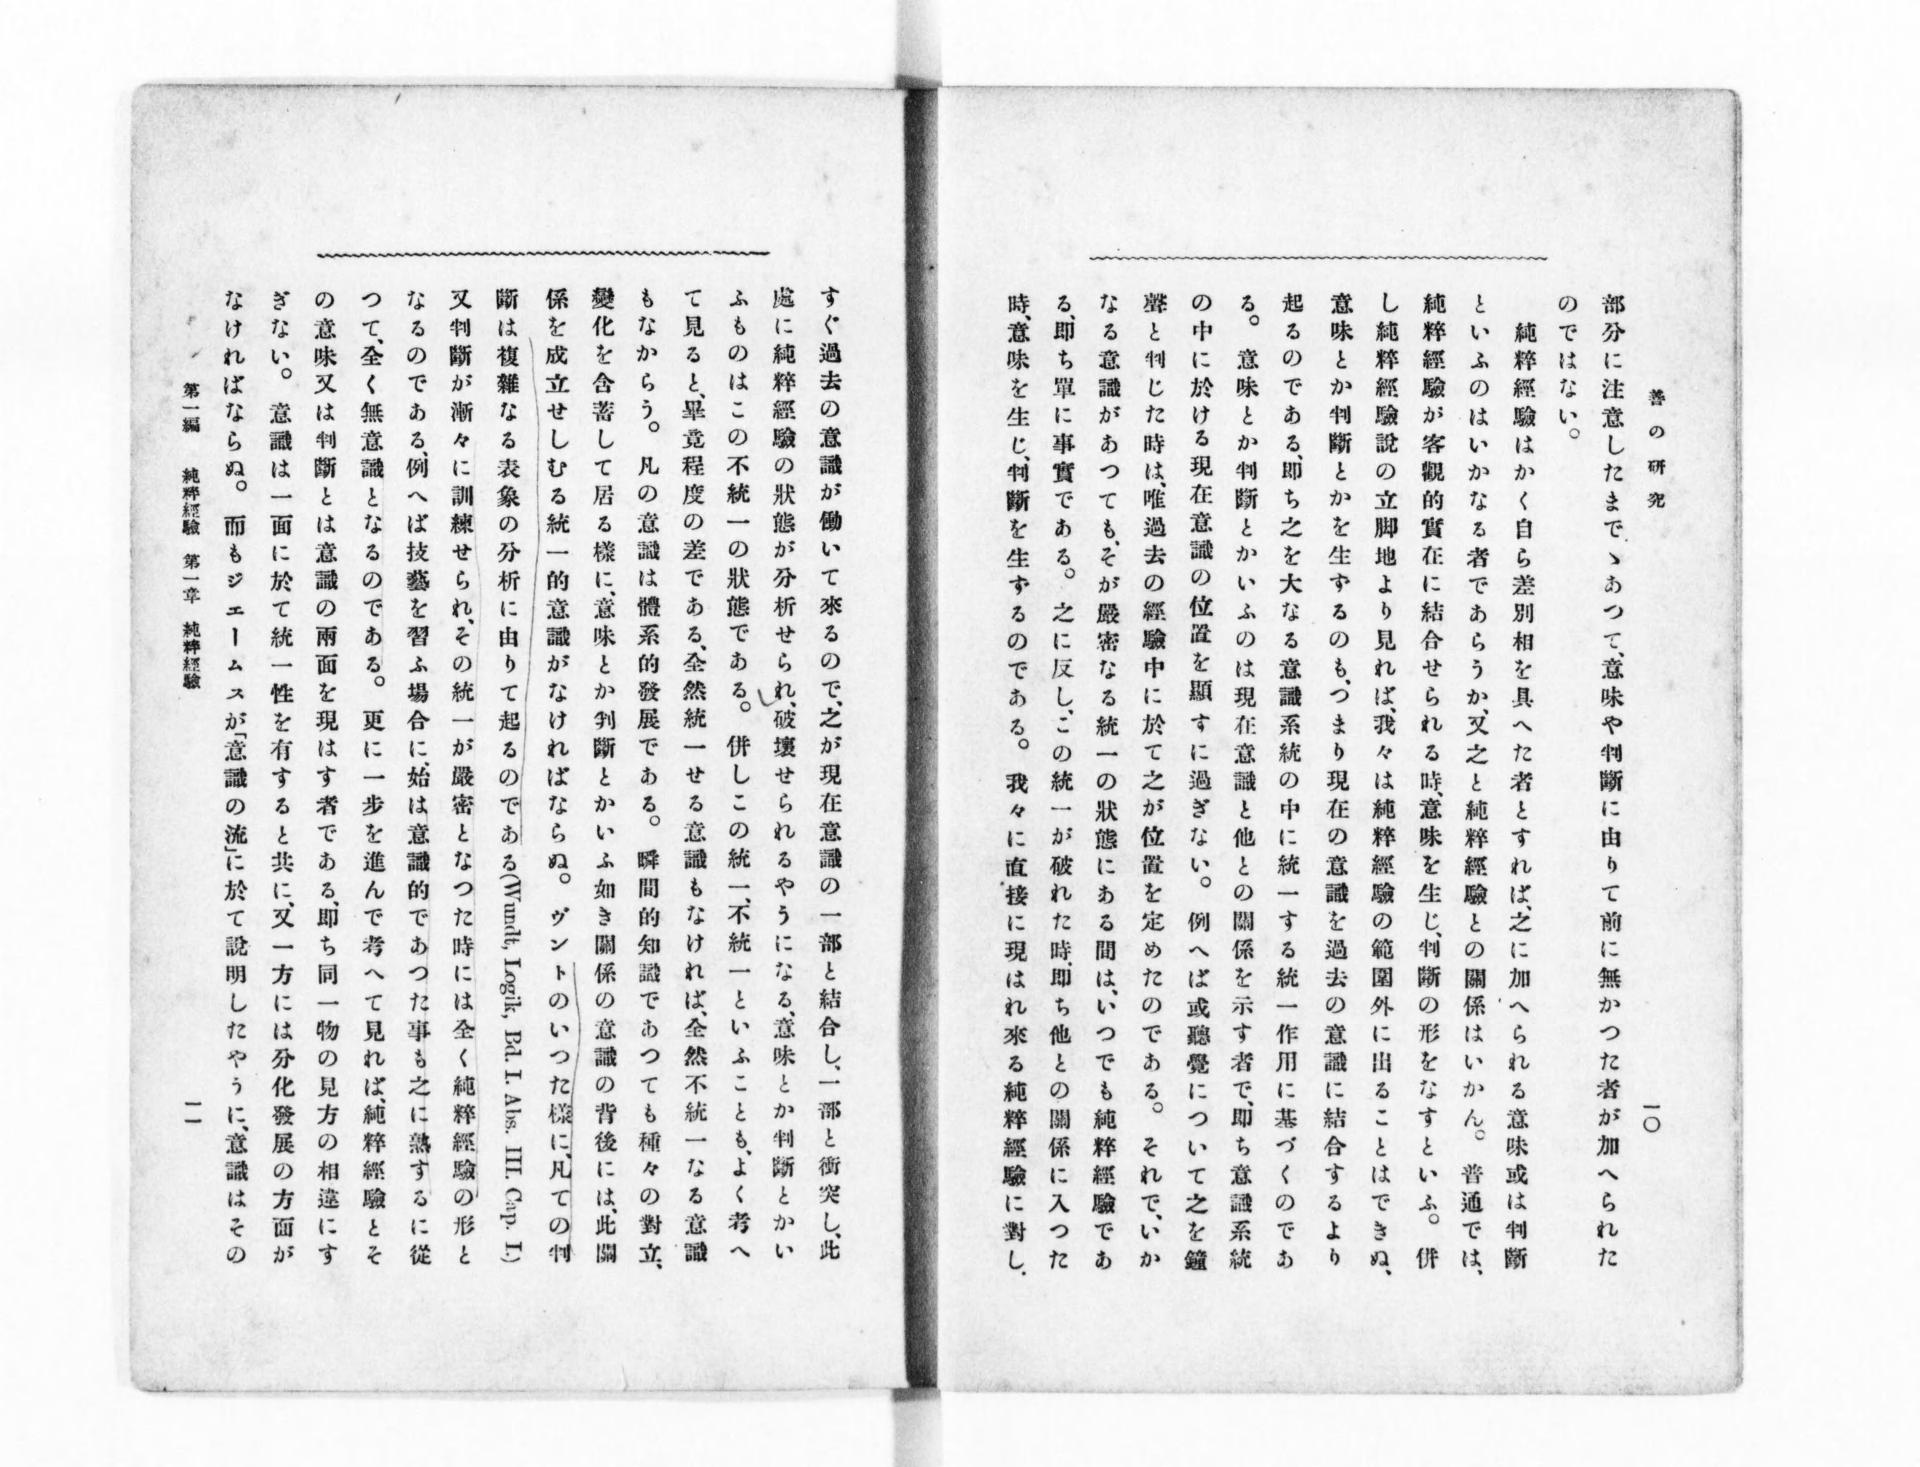 善の研究
一〇
部分に注意したまでゝあつて、意味や判斷に由りて前に無かつた者が加へられた
のではない。
純粹經驗はかく自ら差別相を具へた者とすれば、之に加へられる意味或は判斷
といふのはいかなる者であらうか、又之と純粹經驗との關係はいかん。普通では、
純粹經驗が客觀的實在に結合せられる時、意味を生じ、判斷の形をなすといふ。併
し純粹經驗說の立脚地より見れば、我々は純粹經驗の範圍外に出ることはできぬ、
意味とか判斷とかを生ずるのも、つまり現在の意識を過去の意識に結合するより
起るのである、即ち之を大なる意識系統の中に統一する統一作用に基づくのであ
る。意味とか判斷とかいふのは現在意識と他との關係を示す者で、即ち意識系統
の中に於ける現在意識の位置を顯すに過ぎない。例へば或聽覺について之を鐘
聲と判じた時は、唯過去の經驗中に於て之が位置を定めたのである。それで、いか
なる意識があつても、そが嚴密なる統一の狀態にある間は、いつでも純粹經驗であ
る、即ち單に事實である。之に反し、この統一が破れた時、即ち他との關係に入つた
時、意味を生じ、判斷を生ずるのである。我々に直接に現はれ來る純粹經驗に對し、
すぐ過去の意識が働いて來るので、之が現在意識の一部と結合し、一部と衝突し、此
處に純粹經驗の狀態が分析せられ、破壞せられるやうになる、意味とか判斷とかい
ふものはこの不統一の狀態である。併しこの統一、不統一といふことも、よく考へ
て見ると、畢竟程度の差である、全然統一せる意識もなければ、全然不統一なる意識
もなからう。凡の意識は體系的發展である。瞬間的知識であつても種々の對立、
變化を含蓄して居る樣に、意味とか判斷とかいふ如き關係の意識の背後には、此關
係を成立せしむる統一的意識がなければならぬ。ヴントのいつた樣に、凡ての判
斷は複雜なる表象の分析に由りて起るのである(Wundt, Logik, Bd. I. Abs. III. Cap. I.)
又判斷が漸々に訓練せられ、その統一が嚴密となつた時には全く純粹經驗の形と
なるのである、例へば技藝を習ふ場合に、始は意識的であつた事も之に熟するに從
つて、全く無意識となるのである。更に一步を進んで考へて見れば、純粹經驗とそ
の意味又は判斷とは意識の兩面を現はす者である、即ち同一物の見方の相違にす
ぎない。意識は一面に於て統一性を有すると共に、又一方には分化發展の方面が
なければならぬ。而もジェームスが「意識の流」に於て說明したやうに、意識はその
第一編 純粹經驗 第一章 純粹經驗
一一